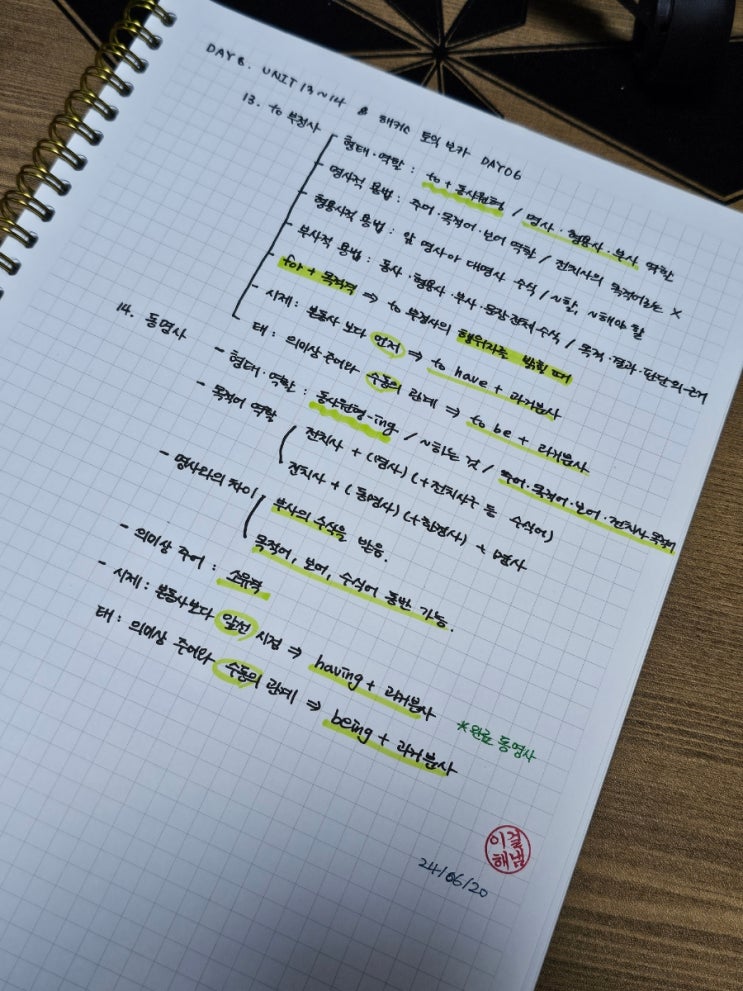 DAY 8. UNIT 13~14 & 해커스 토익 보카 DAY06
13. to 부정사
형태·역할 : to + 동사원형 / 명사·형용사·부사 역할
- 명사적 용법 : 주어·목적어·보어 역할 / 전치사의 목적어로는 X
- 형용사적 용법 : 앞 명사나 대명사 수식 / ~할, ~해야 할
- 부사적 용법 : 동사·형용사·부사·문장전체 수식 / 목적·결과·판단의 근거
- for + 목적격 ⇒ to 부정사의 행위자를 밝힐 때
- 시제 : 본동사 보다 먼저 ⇒ to have + 과거분사
태 : 의미상 주어와 수동의 관계 ⇒ to be + 과거분사
14. 동명사
- 형태·역할 : 동사원형-ing / ~하는 것 / 주어·목적어·보어·전치사 목적어
- 목적어 역할
전치사 + (명사) (+전치사구 등 수식어)
전치사 + (동명사) (+한정사) + 명사
- 명사와의 차이
부사의 수식을 받음.
목적어, 보어, 수식어 동반 가능.
- 의미상 주어 : 소유격
- 시제 : 본동사보다 앞선 시점 ⇒ having + 과거분사 *완료 동명사
태 : 의미상 주어와 수동의 관계 ⇒ being + 과거분사
이걸
해냄
24/06/20